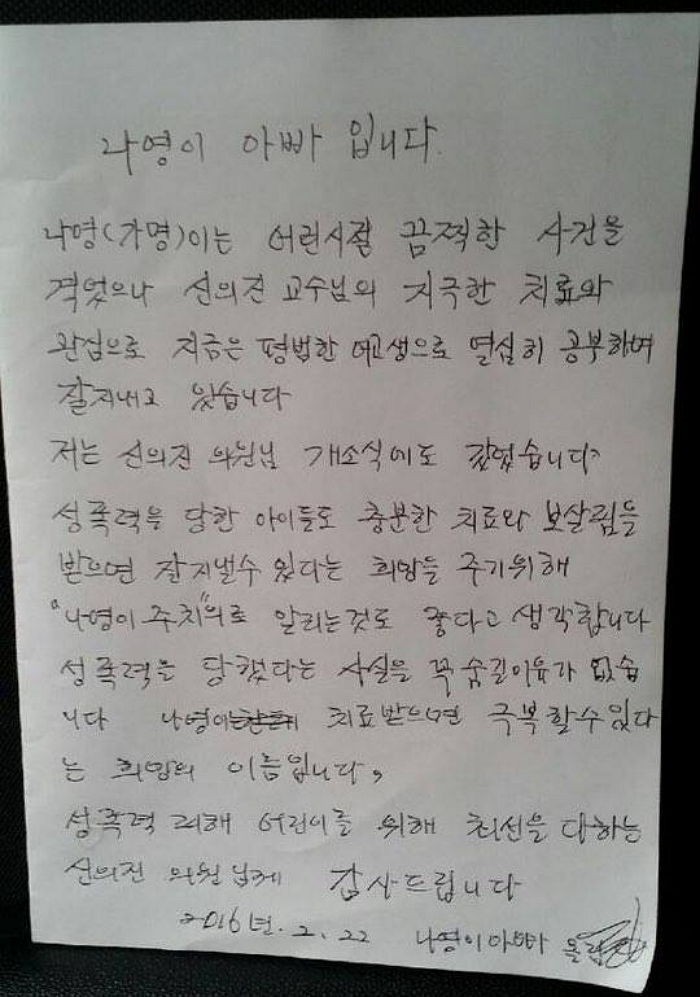 나영이 아빠 입니다.
나영(가명)이는 어린시절 끔찍한 사건을
격었으나 신의진 교수님의 지극한 치료와
관심으로 지금은 평범한 여고생으로 열심히 공부하며
잘지내고 있습니다
저는 신의진 의원님 개소식에도 갔었습니다,
성폭력을 당한 아이들도 충분한 치료와 보살핌을
받으면 잘지낼수 있다는 희망을 주기위해
"나영이 주치"의로 알리는것도 좋다고 생각합니다
성폭력을 당했다는 사실을 꼭 숨길이유가 없습
니다 나영이는 치료받으면 극복할수있다
는 희망의 이름입니다,
성폭력 피해 어린이를 위해 최선을 다하는
신의진 의원님께 감사드립니다
2016년. 2. 22 나영이아빠 올림